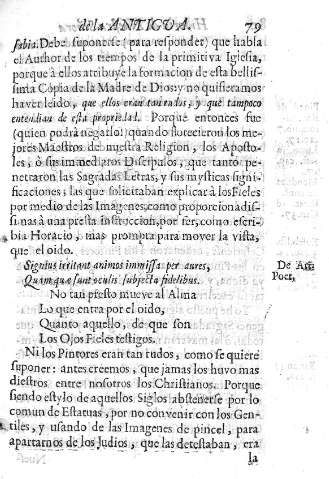 de la ANTIGUA. 79
sabia. Debe suponerse (para responder) que habla
el Author de los tiempos de la primitiva Iglesia,
porque à ellos atribuye la formacion de esta bellis-
sima Copia de la Madre de Dios: y no quisieramos
haver leìdo, que ellos eran tan rudos, y que tampoco
entendian de esta propriedad. Porque entonces fue
(quien podrà negarlo) quando florecieron los me-
jores Maestros de nuestra Religion, los Aposto-
les, ò sus immediatos Discipulos, que tanto pe-
netraron las Sagradas Letras, y sus mysticas signi-
ficaciones; las que solicitaban explicar à los Fieles
por medio de las Imagenes, como proporcionadis-
simas à una presta instruccion, por ser, como escri-
biò Horacio, mas prompta para mover la vista,
que el oìdo.
Signius irritant animos immissa per aures, De Art.
Quam quæ sunt oculis subjecta fidelibus. Poet.
No tan presto mueve al Alma
Lo que entra por el oìdo,
Quanto aquello, de que son
Los Ojos Fieles testigos.
Ni los Pintores eran tan rudos, como se quiere
suponer: antes creemos, que jamas los huvo mas
diestros entre nosotros los Christianos. Porque
siendo estylo de aquellos Siglos abstenerse por lo
comun de Estatuas, por no convenir con los Gen-
tiles, y usando de las Imagenes de pincel, para
apartarnos de los Judios, que las detestaban, era
la